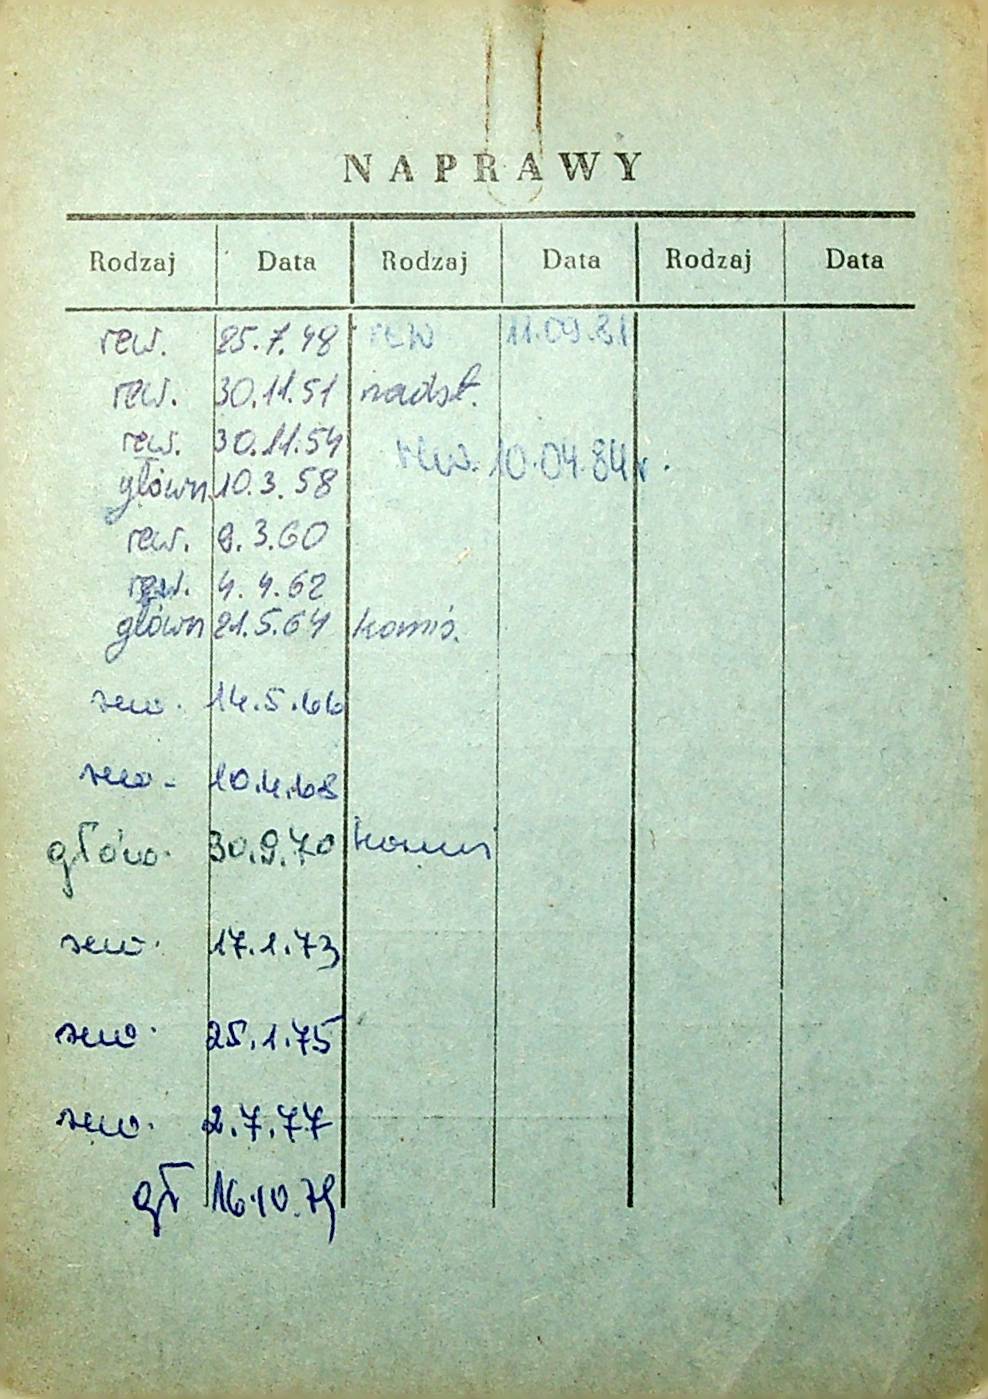 NAPRAWY
Rodzaj Data Rodzaj Data Rodzaj Data
rew. 25.7.48 rew 11.09.81
rew. 30.11.51 nadst.
rew. 30.11.54 rew. 10.04.84r.
główn. 10.3.58
rew. 8.3.60
rew. 4.4.62
główn 21.5.64 komis.
rew. 14.5.66
rew. 10.4.68
główn. 30.9.70 komis
rew. 17.1.73
rew. 25.1.75
rew. 2.7.77
gł 16.10.79